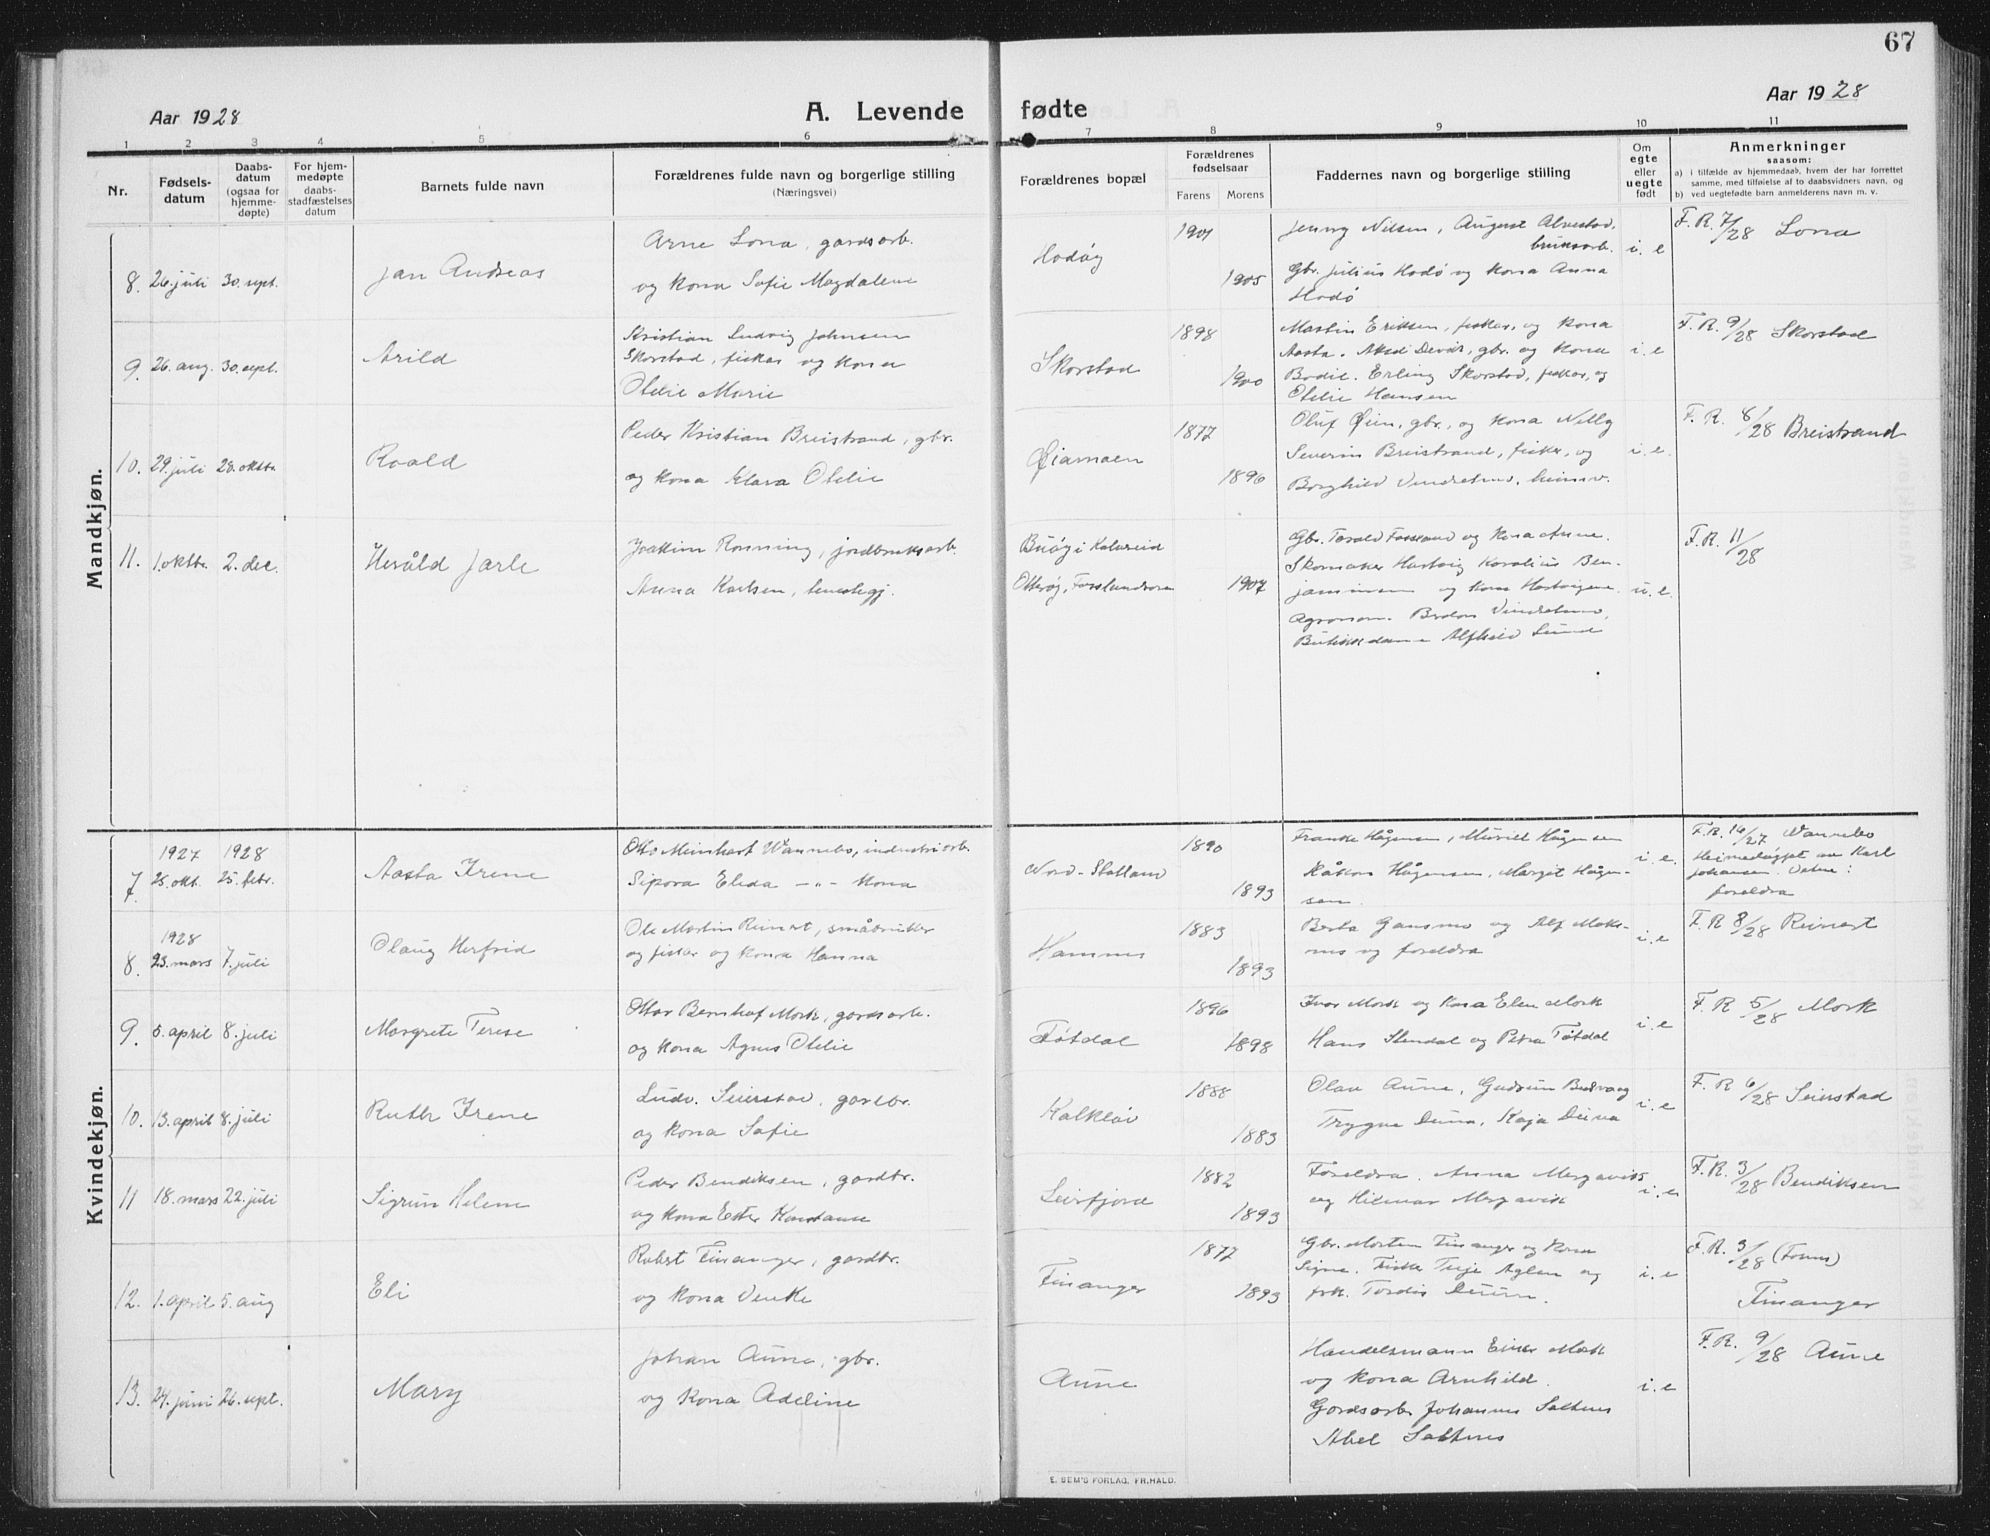 67
Aar 1928
A. Levende fødte
Aar 1928
1 2 3 4 5 6 7 8 9 10 11
Nr.
Fødsels-
datum
Daabs-
datum
(ogsaa for
hjemme-
døpte)
For hjem-
medøpte
daabs-
stadfæstelses
datum
Barnets fulde navn
Forældrenes fulde navn og borgerlige stilling
(Næringsvei)
Forældrenes bopæl
Forældrenes
fødselsaar
Farens Morens
Faddernes navn og borgerlige stilling
Om
egte
eller
uegte
født
Anmerkninger
saasom:
a) i tilfælde av hjemmedaab, hvem der har forrettet
samme, med tilføielse af to daabsvidners navn, og
b) ved uegtefødte barn anmelderens navn m. v.
Mandkjøn.
8. 26. juli 30. sept.
Jan Andreas
Arne Lona, gardsarb.
og kona Sofie Magdalene
Hodøy
1901
1905
Jenny Nilsen, August Alvestad,
bruksarb.
Gbr. Julius Hodø og kona Anna
Hodø
i. e
F. R. 7/28 Lona
9. 26. aug. 30. sept.
Arild
Kristian Ludvig Johnsen
Skorstad, fisker og kona
Otelie Marie
Skorstad
1898
1900
Martin Eriksen, fisker, og kona
Aasta. Aksel Devik, gbr. og kona
Bodil. Erling Skorstad, fisker, og
Otelie Hansen
i. e
F. R. 9/28 Skorstad
10. 29. juli 28. oktbr
Roald
Peder Kristian Breistrand, gbr.
og kona Klara Otelie
Øiamoen
1877
1896
Oluf Øien, gbr., og kona Nelly
Severin Breistrand, fisker, og
Borghild Vindretun, heimev.
i. e.
F. R. 8/28 Breistrand
11. 1. oktbr. 2. dec.
Heråld Jarle
Joakim Rønning, jordbruksarb.
Anna Karlsen, tenestegj.
Buøy i Kolvereid
Otterøy, Fosslandsosen
1907
Gbr. Torald Fossland og kona Anne.
Skomaker Hartvig Koralius Ben-
jaminsen og kona Hartvigine.
Agronom Vindretun,
Butikkdame Alfhild Lund
u. e.
F. R. 11/28
Kvindekjøn.
1927 1928
7. 25. okt. 25. febr.
Aasta Irene
Otto Meinhart Wannebo, industriarb.
Sipora Elida —"— kona
Nord-Statland
1890
1893
Franke Hågensen, Muriel Hågensen
Håkon Hågensen, Margit Hågen-
sen.
i. e.
F. R. 16/27 Wannebo
Heimedøypt av Karl
Johansen. Vitne:
foreldra
1928
8. 23. mars 7. juli
Olaug Herfrid
Ole Martin Reinert, småbruker
og fisker og kona Hanna
Hamnes
1883
1893
Berta Gansmo og Alf Moks-
nes og foreldra
i. e
F. R 8/28 Reinert
9. 5. april 8. juli
Margrete Terese
Ottar Bernhof Mork, gardsarb.
og kona Agnes Otelie
Føtdal
1896
1898
Ivar Mork og kona Elen Mork
Hans Stendal og Petra Tøtdal
i. e
F. R 5/28 Mork
10. 13. april 8. juli
Ruth Irene
Ludv. Seierstad, gardbr.
og kona Sofie
Kalkløi
1888
1883
Olav Aune, Gudrun Bedva og
Trygve Duna, Kaja Duna
i. e
F. R 6/28 Seierstad
11 18. mars 22. juli
Sigrun Helene
Peder Bendiksen, gardbr.
og kona Ester Konstanse
Leirfjord
1882
1893
Foreldra. Anna Mergavik
og Hilmar Mergavik
i. e
F. R. 3/28 Bendiksen
12. 1. april 5. aug
Eli
Robert Finanger, gardbr.
og kona Venke
Finanger
1877
1893
Gbr. Morten Finanger og kona
Signe. Fisker Terje Aglen og
frk. Tordis Duun.
i. e
F. R. 3/28 (Fosnes)
Finanger
13. 24. juni 26. sept.
Mary
Johan Aune, gbr.
og kona Adeline
Aune
Handelsmann Einar Mork
og kona Arnhild.
Gardsarb. Johannes Saltnes
Abel Saltnes
i. e
F. R. 9/28 Aune
E. SEM'S FORLAG, FR.HALD.